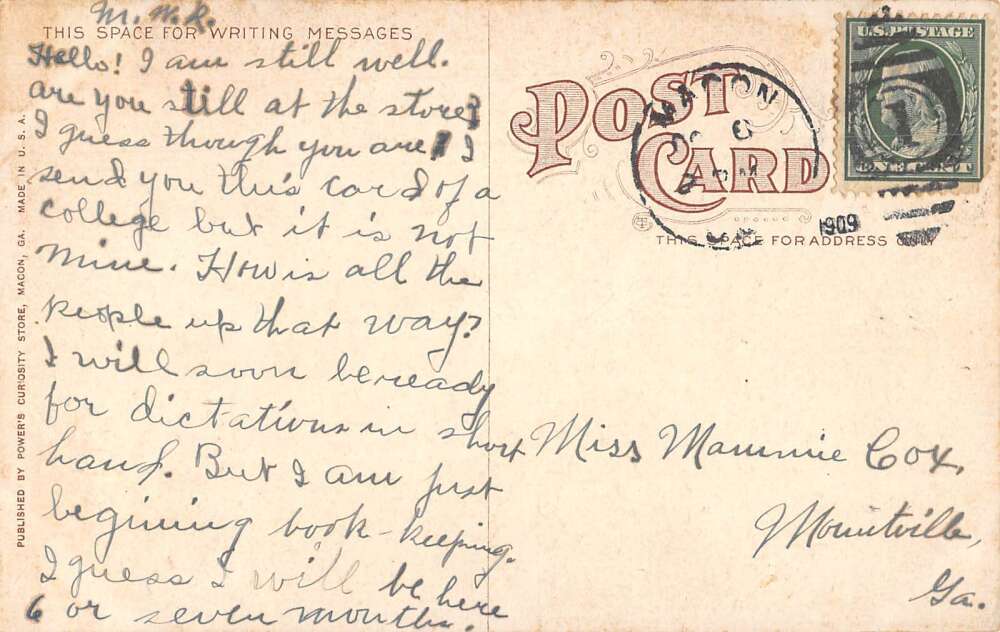 M. W. R.
THIS SPACE FOR WRITING MESSAGES
Hello! I am still well.
are you still at the store?
I guess though you are, I
send you this card of a
college but it is not
mine. How is all the
people up that way?
I will soon be ready
for dictations in short
hand. But I am just
beginning book-keeping.
I guess I will be here
6 or seven months.
PUBLISHED BY POWER'S CURIOSITY STORE, MACON, GA. MADE IN U. S. A.
POST
CARD
THIS SPACE FOR ADDRESS ONLY
MACON
1909
U.S. POSTAGE
1
ONE CENT
Miss Mammie Cox,
Mountville,
Ga.